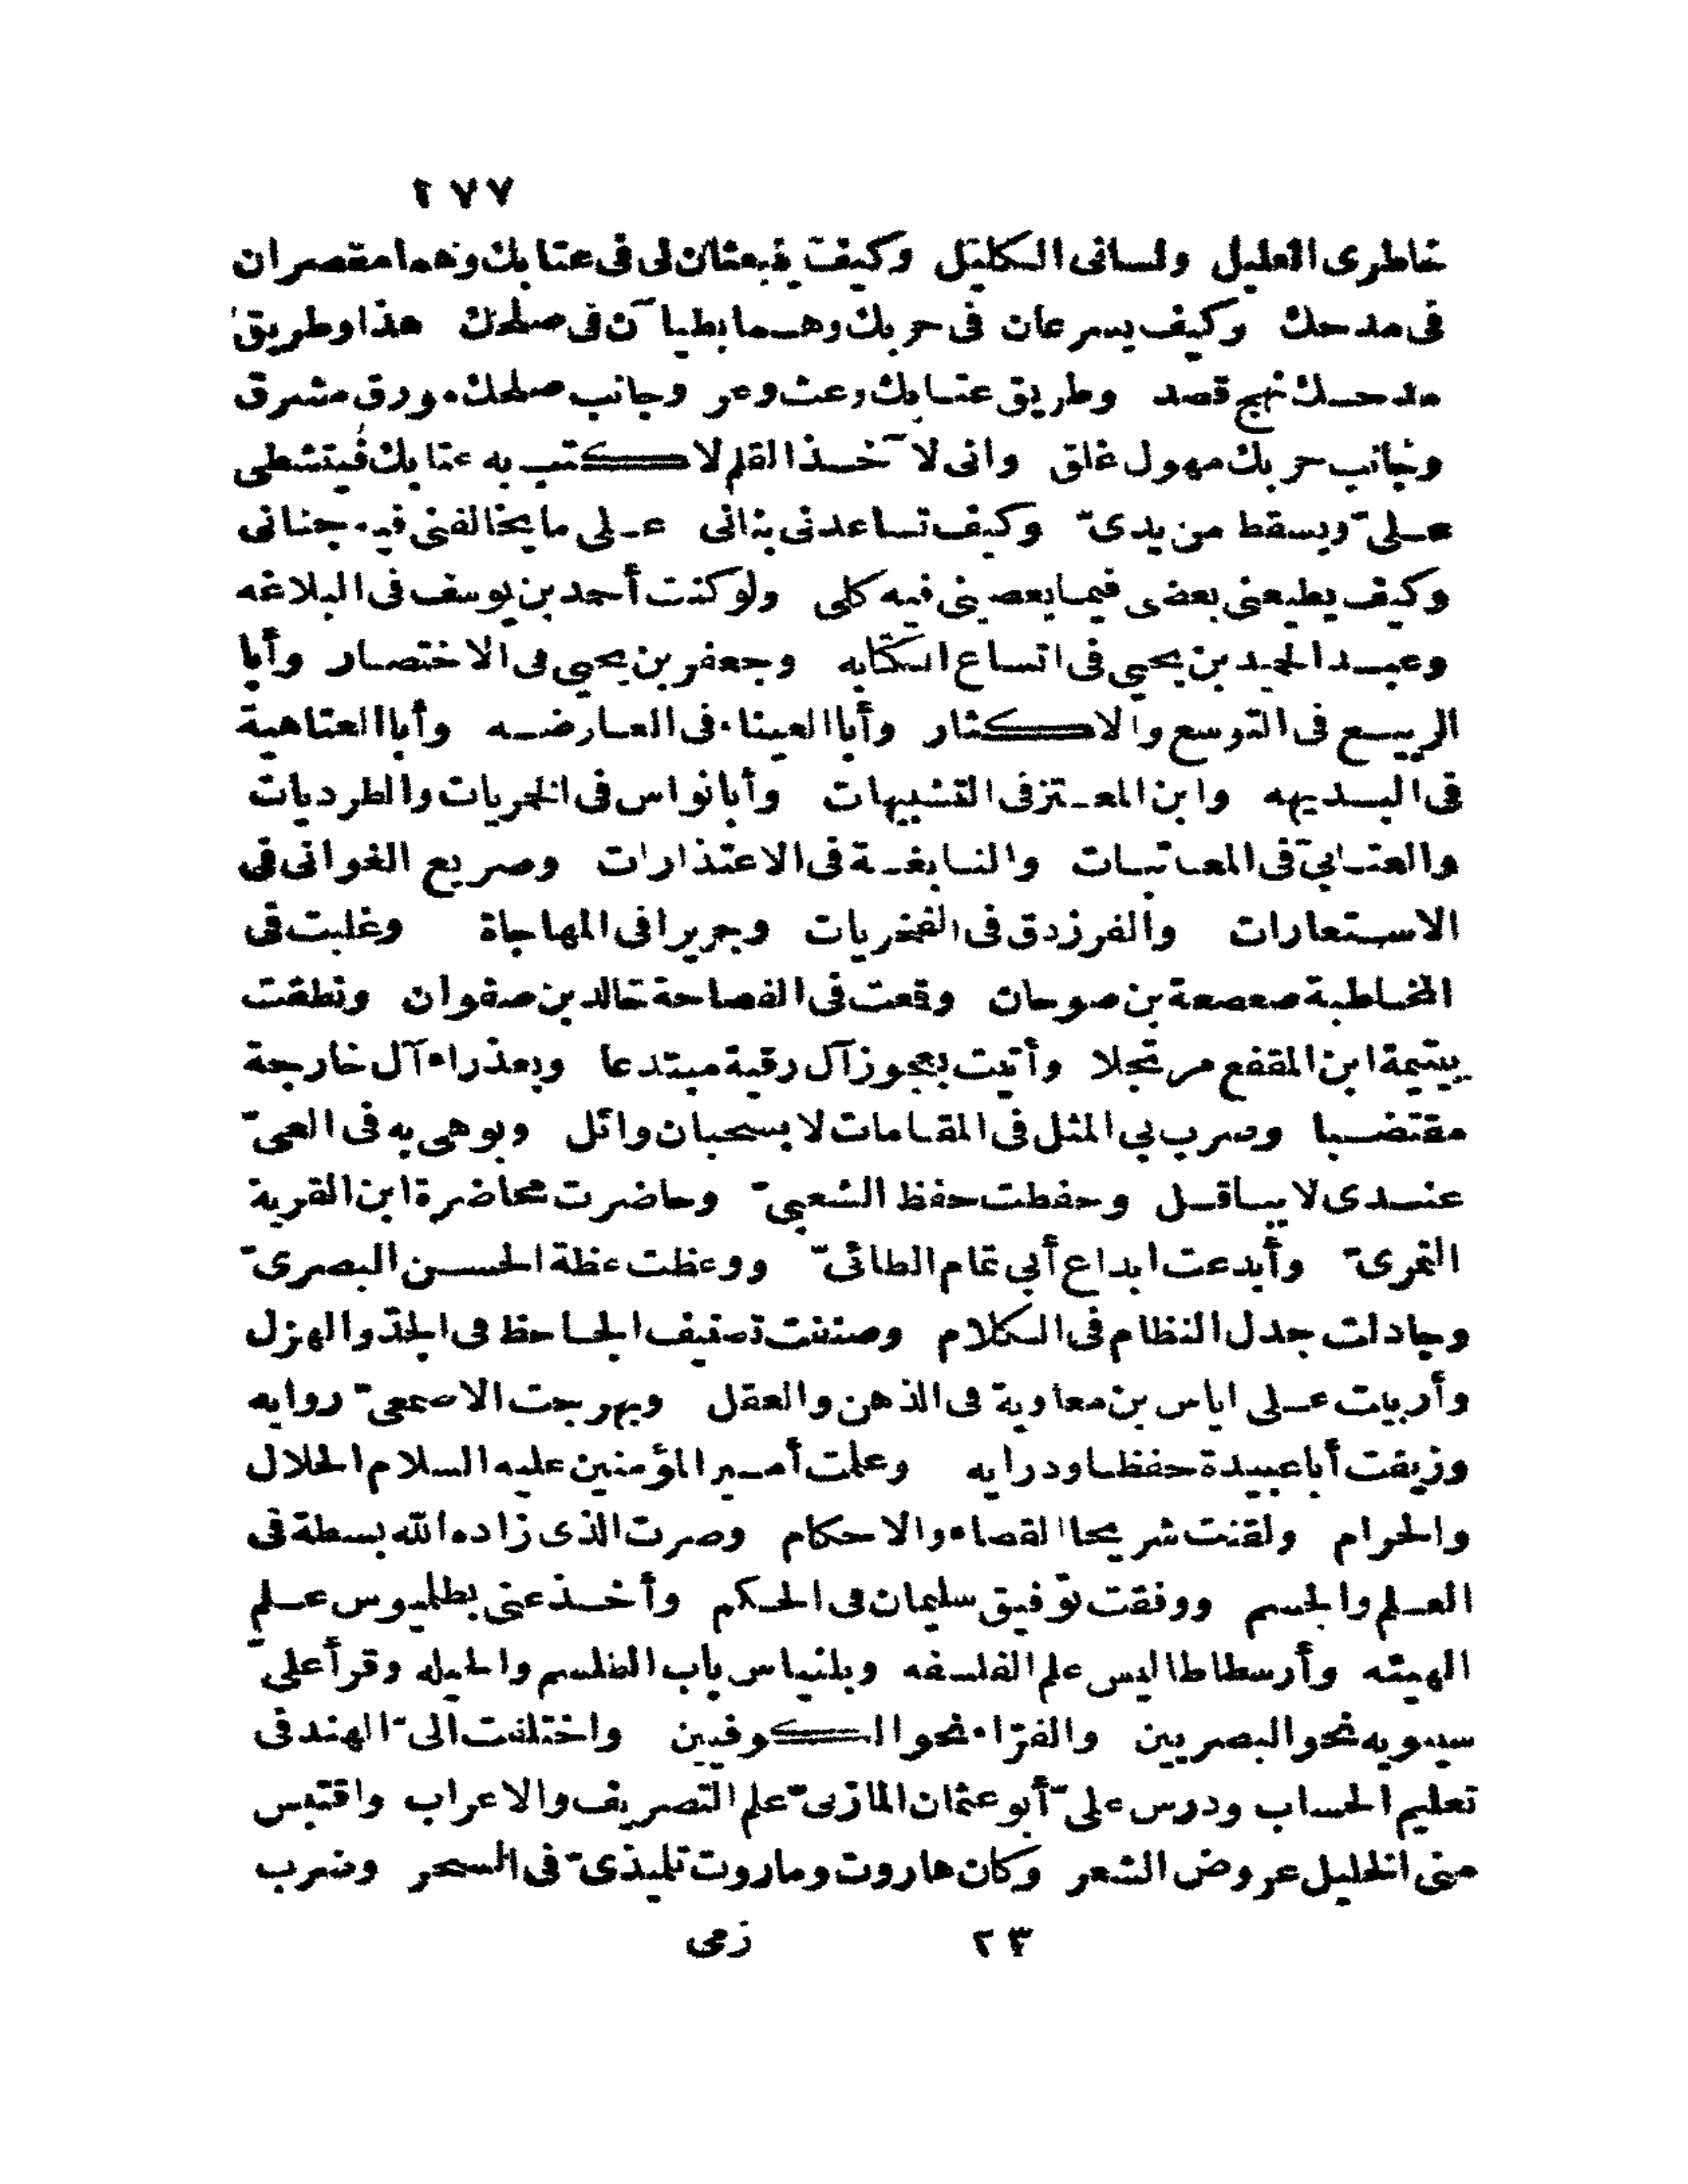 ١٧٧
خاطرى العليل ولسانى الكليل وكيف ينبعثان لى فى عتابك وهما مقصران
فى مدحك وكيف يسرعان فى حربك وهما بطيآن فى صلحك هذا وطريق
مدحك نهج قصد وطريق عتابك وعث وعر وجانب صلحك مورق مشرق
وجانب حربك مهول غلق وانى لآخذ القلم لاكتب به عتابك فيتشظى
علىّ ويسقط من يدىّ وكيف تساعدنى بنانى على ما يخالفنى فيه جنانى
وكيف يطيعنى بعضى فيما يعصينى فيه كلى ولو كنت أحمد بن يوسف فى البلاغه
وعبد الحميد بن يحيى فى اتساع الكتابه وجعفر بن يحيى فى الاختصار وأبا
الربيع فى التوسع والاكثار وأبا العيناء فى العارضه وأبا العتاهية
فى البديهه وابن المعتز فى التشبيهات وأبا نواس فى الخمريات والطرديات
والعتابىّ فى المعاتبات والنابغة فى الاعتذارات وصريع الغوانى فى
الاستعارات والفرزدق فى الفخريات وجريرا فى المهاجاة وغلبت فى
المخاطبة صعصعة بن صوحان وقعت فى الفصاحة خالد بن صفوان ونطقت
بيتيمة ابن المقفع مرتجلا وأتيت بعجوز آل رقية مبتدعا وبعذراء آل خارجة
مقتضبا وضرب بي المثل فى المقامات لا بسحبان وائل وبوهى به فى العىّ
عندى لا بباقل وحفظت حفظ الشعبىّ وحاضرت محاضرة ابن القرية
النمرىّ وأبدعت ابداع أبي تمام الطائىّ ووعظت عظة الحسن البصرىّ
وجادلت جدل النظام فى الكلام وصنفت تصنيف الجاحظ فى الجدّ والهزل
وأربيت على اياس بن معاوية فى الذهن والعقل وبهرجت الاصمعىّ روايه
وزيفت أبا عبيدة حفظا ودرايه وعلمت أمير المؤمنين عليه السلام الحلال
والحرام ولقنت شريحا القضاء والاحكام وصرت الذى زاده الله بسطة فى
العلم والجسم ووفقت توفيق سليمان فى الحكم وأخذ عنى بطلميوس علم
الهيئه وأرسطاطاليس علم الفلسفه وبلنياس باب الطلسم والحيله وقرأ علىّ
سيبويه نحو البصريين والفرّاء نحو الكوفيين واختلفت الىّ الهند فى
تعليم الحساب ودرس علىّ أبو عثمان المازنىّ علم التصريف والاعراب واقتبس
منى الخليل عروض الشعر وكان هاروت وماروت تلميذىّ فى السحر وضرب
٢٣